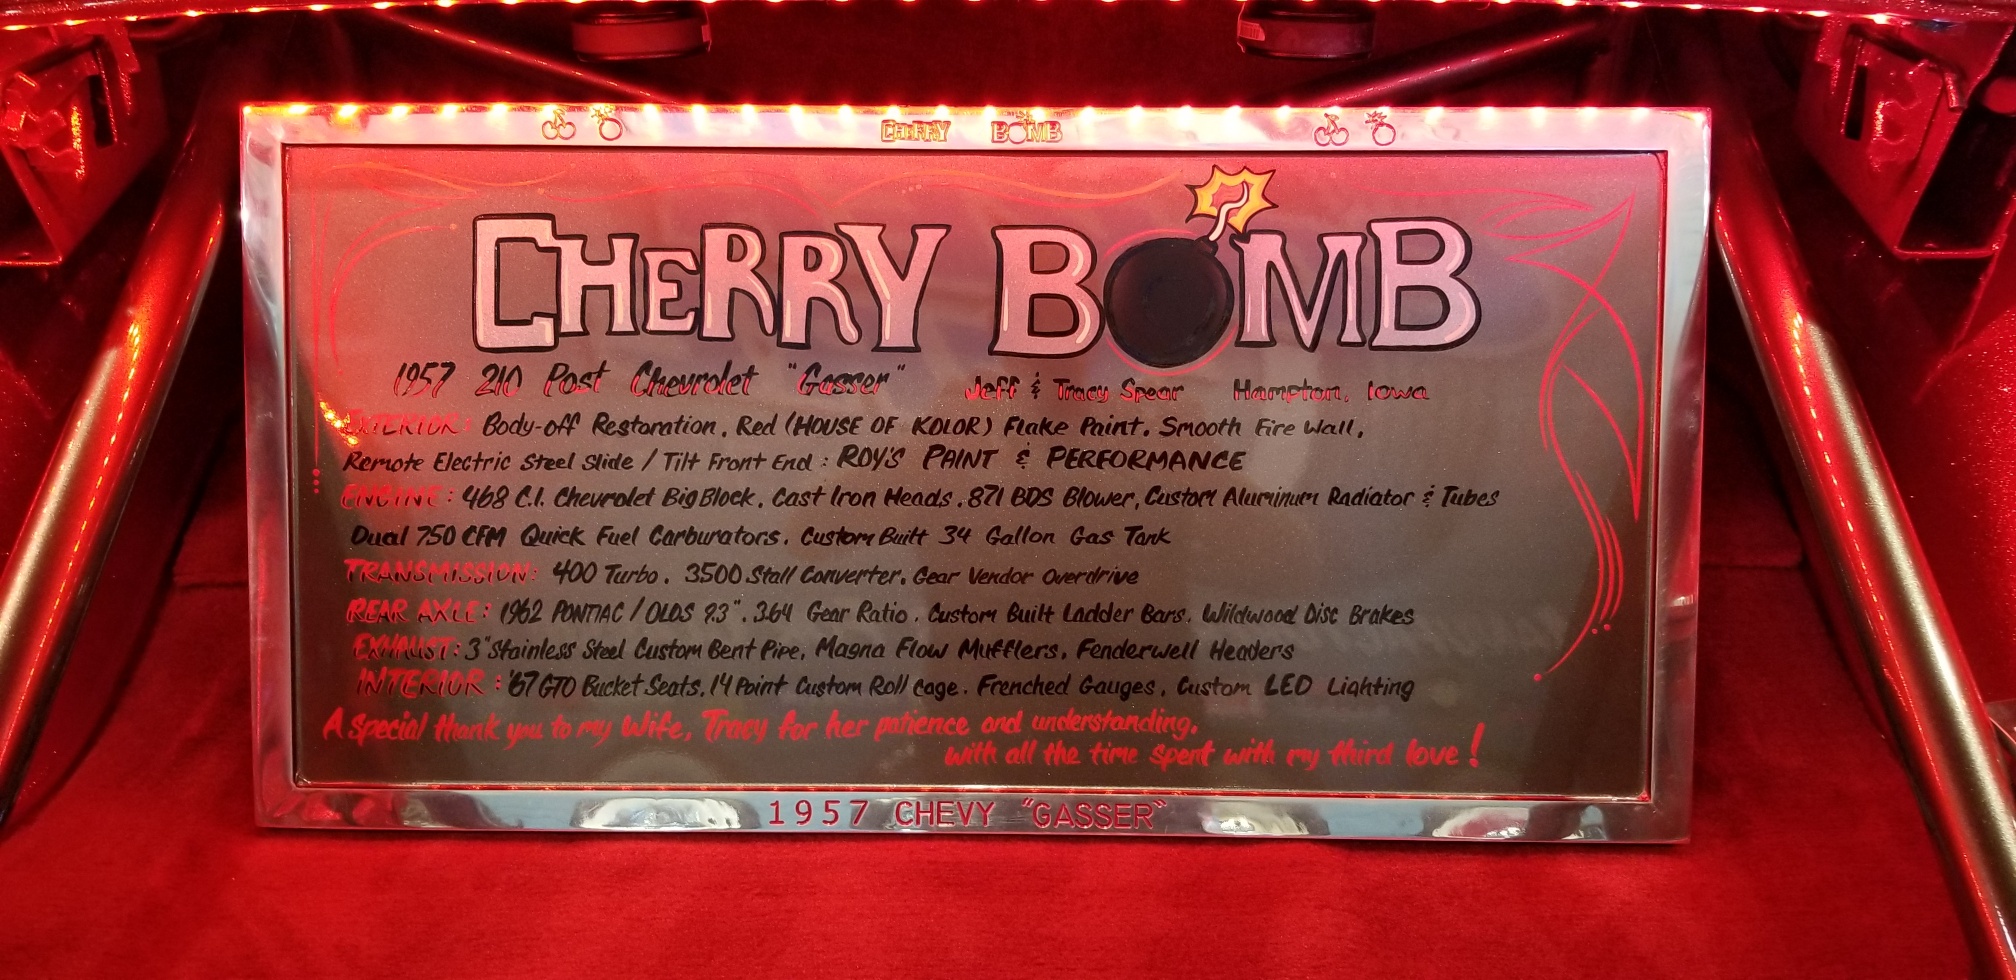 CHERRY BOMB
CHERRY BOMB
1957 210 Post Chevrolet "Gasser" Jeff & Tracy Spear Hampton, Iowa
EXTERIOR: Body-off Restoration, Red (HOUSE OF KOLOR) Flake Paint, Smooth Fire Wall,
Remote Electric Steel Slide / Tilt Front End : ROY'S PAINT & PERFORMANCE
ENGINE: 468 C.I. Chevrolet Big Block, Cast Iron Heads, 871 BDS Blower, Custom Aluminum Radiator & Tubes
Dual 750 CFM Quick Fuel Carburators, Custom Built 34 Gallon Gas Tank
TRANSMISSION: 400 Turbo, 3500 Stall Converter, Gear Vendor Overdrive
REAR AXLE: 1962 PONTIAC / OLDS 9.3", 3.64 Gear Ratio, Custom Built Ladder Bars, Wildwood Disc Brakes
EXHAUST: 3" Stainless Steel Custom Bent Pipe, Magna Flow Mufflers, Fenderwell Headers
INTERIOR: '67 GTO Bucket Seats, 14 Point Custom Roll Cage, Frenched Gauges, Custom LED Lighting
A Special thank you to my Wife, Tracy for her patience and understanding,
with all the time spent with my third love!
1957 CHEVY "GASSER"